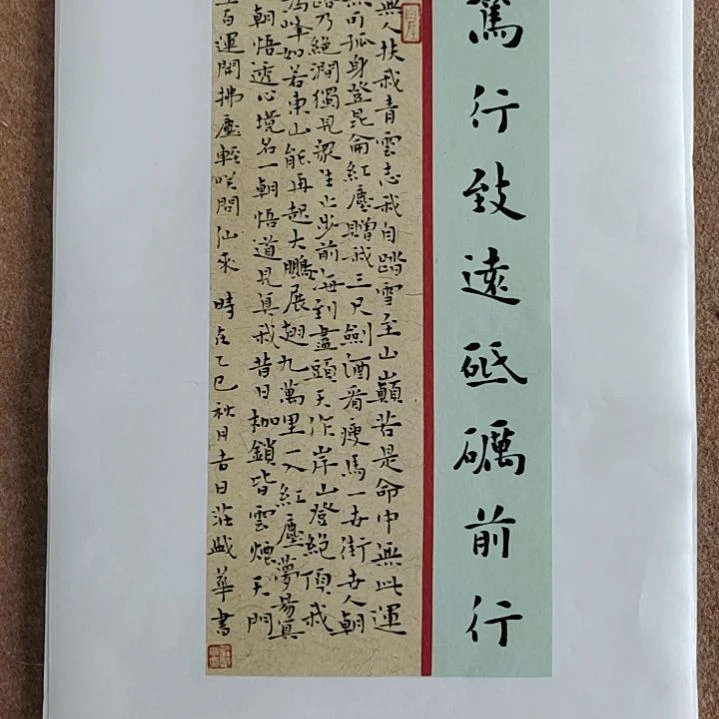 篤行致遠砥礪前行
無人扶我青雲志我自踏雪至山巔若是命中無此運
而孤身登崑崙紅塵贈我三尺劍酒看瘦馬一世街世人朝
路乃絕澗獨見眾生止步前海到盡頭天作岸山登絕頂我
為峰如若東山能再起大鵬展翅九萬里一入紅塵夢易真
朝悟透心境名一朝悟道見真我昔日枷鎖皆雲煙天門
百運開拂塵輕咲問仙來 時在乙巳秋月吉日莊盛華書